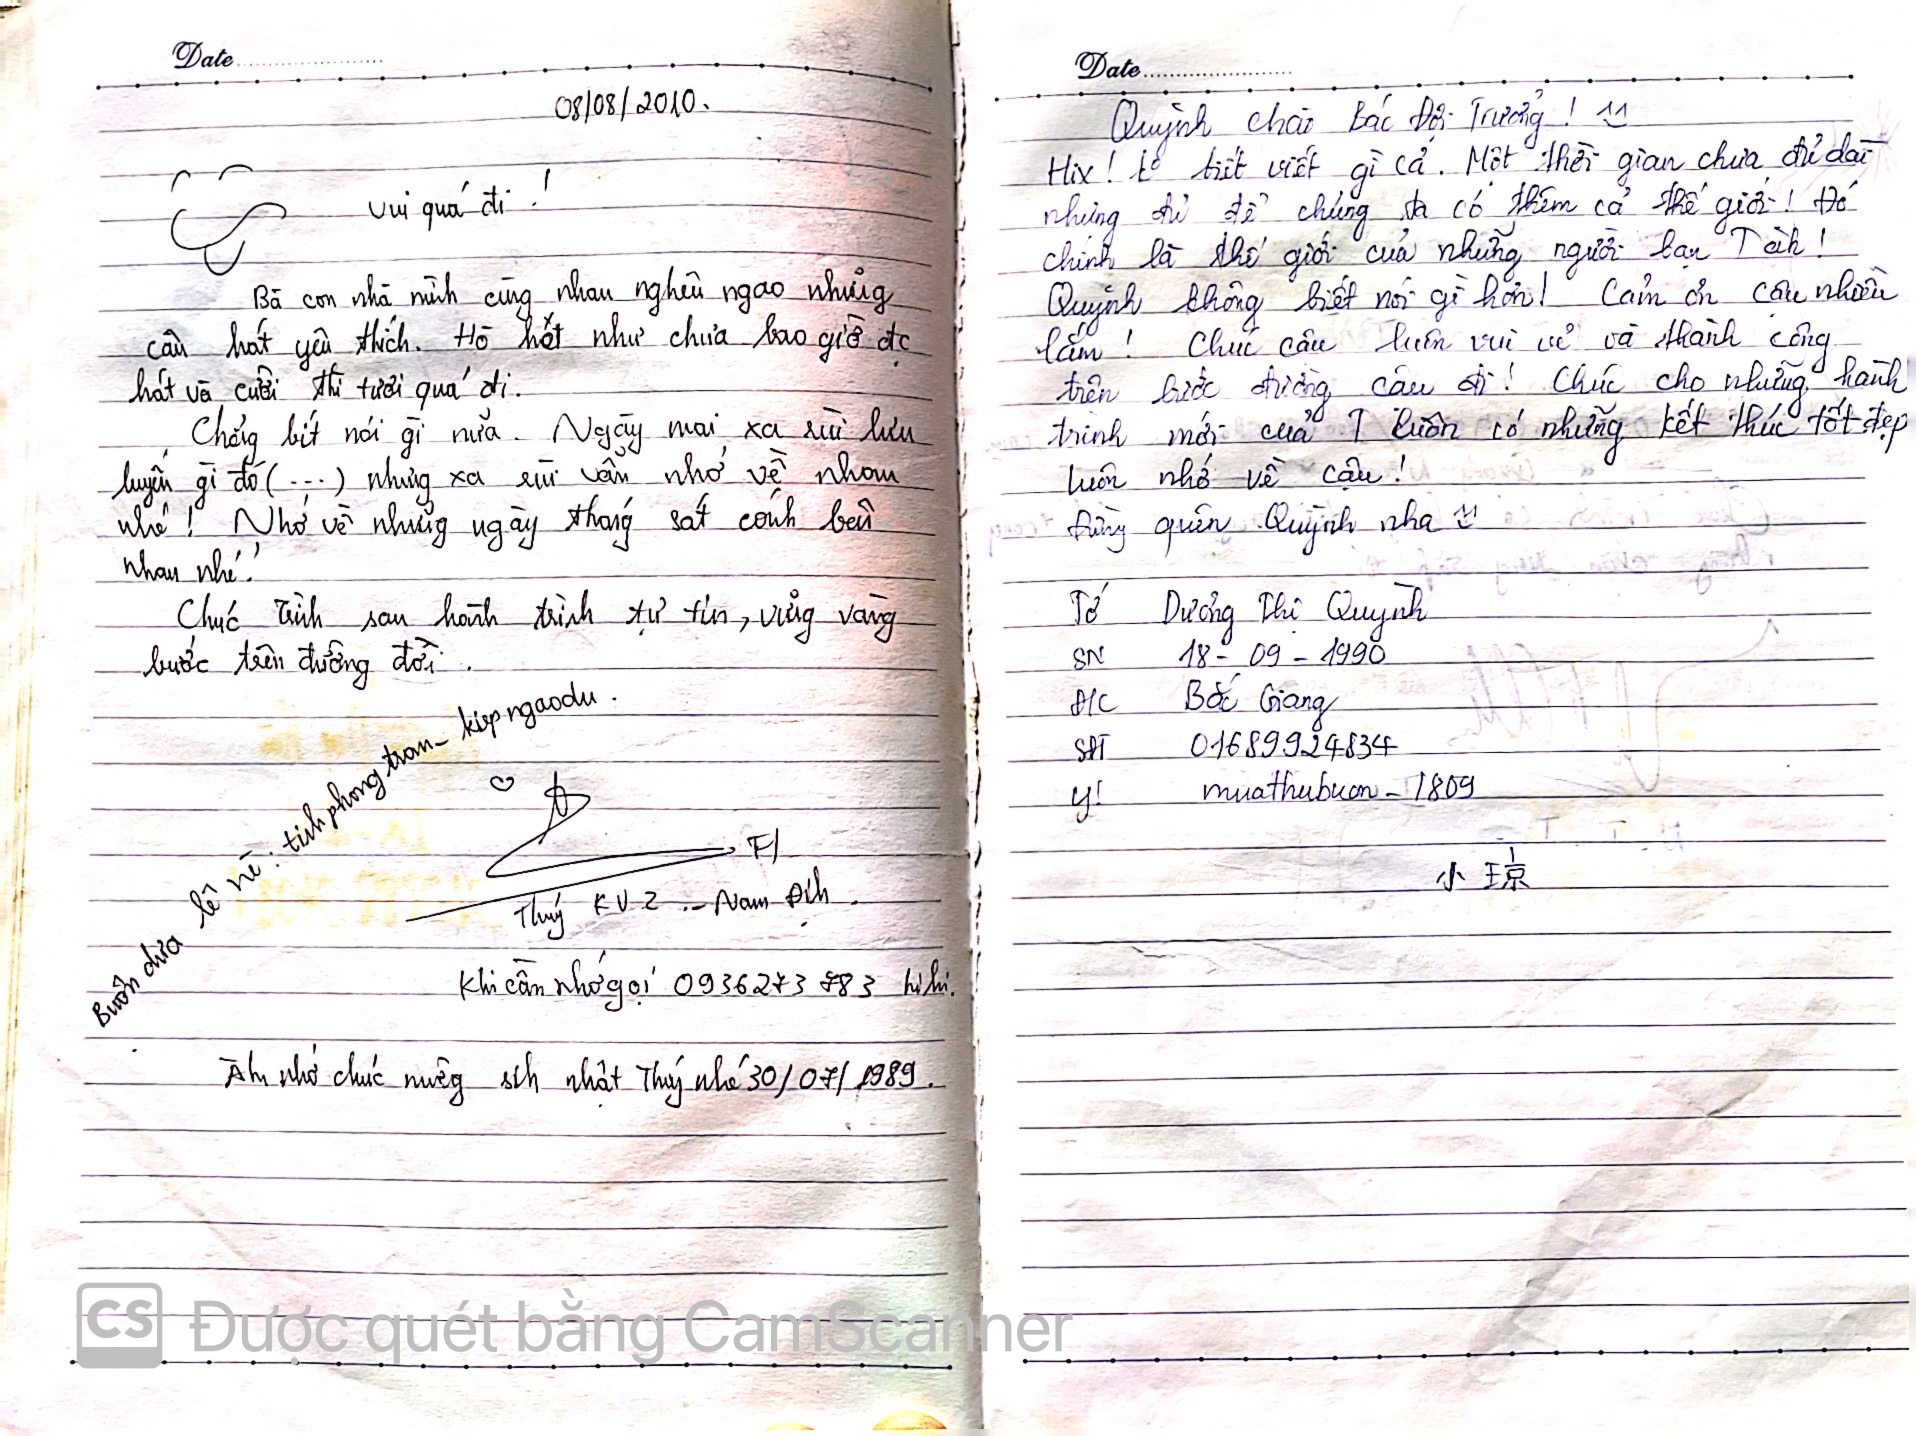 Date
08/08/2010.
Vui quá đi !
Bà con nhà mình cùng nhau nghêu ngao những
câu hát yêu thích. Hò hát như chưa bao giờ đc
hát và cười thì tươi quá đi.
Chẳng bít nói gì nữa. Ngày mai xa rùi lưu
luyến gì đó (...) nhưng xa rùi vẫn nhớ về nhau
nhé! Nhớ về những ngày tháng sát cánh bên
nhau nhé!
Chúc Trình sau hành trình tự tin, vững vàng
bước trên đường đời.
Buôn dưa lê nè: tinhphongtran_kiepngaodu.
Thuý KV2 - Nam Định.
Khi cần nhớ gọi 0936273783 hihi.
À nhớ chúc mừng sinh nhật Thuý nhé 30/07/1989.
Date
Quỳnh chào bác Đội Trưởng! ^^
Hix! tớ biết viết gì cả. Một thời gian chưa đủ dài
nhưng đủ để chúng ta có thêm cả thế giới! Đó
chính là thế giới của những người bạn Tình!
Quỳnh không biết nói gì hơn! Cảm ơn cậu nhiều
lắm! Chúc cậu luôn vui vẻ và thành công
trên bước đường cậu đi! Chúc cho những hành
trình mới của T luôn có những kết thúc tốt đẹp
luôn nhớ về cậu!
Đừng quên Quỳnh nha ^^
Tớ Dương Thị Quỳnh
SN 18 - 09 - 1990
Đ/C Bắc Giang
SĐT 01689924834
Y! muathubuon_1809
小琼
CS Được quét bằng CamScanner